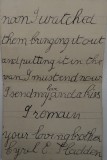 noon I watched
them bringing it out
and putting it in the
van. I must end now
I send my love to him
I remain
your loving brother
Cyril E.